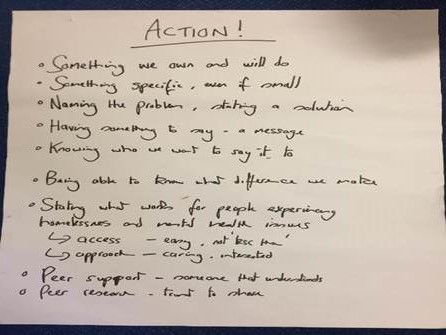 ACTION!
• Something we own and will do
• Something specific, even if small
• Naming the problem, stating a solution
• Having something to say - a message
• Knowing who we want to say it to
• Being able to know what difference we make
• Stating what works for people experiencing
homelessness and mental health issues
↳ access - easy, not 'less than'
↳ approach - caring, interested
• Peer support - someone that understands
• Peer research - trust to share